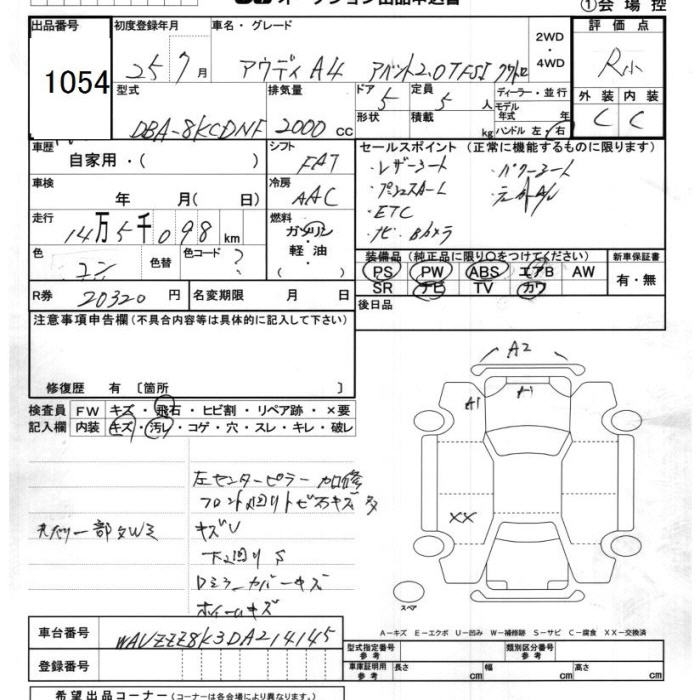 ①会場控
出品番号
1054
初度登録年月
25 7月
車名・グレード
アウディA4 アバント2.0TFSI クワトロ
2WD
・
4WD
評価点
R
外装 内装
C C
型式
DBA-8KCDNF
排気量
2000 cc
ドア
5
形状
定員
5 人
積載
kg
ディーラー・並行
モデル年式 年
ハンドル 左・右
車歴
自家用・( )
シフト
FAT
セールスポイント (正常に機能するものに限ります)
・レザーシート ・パワーシート
・ETC
・ナビ・Bカメラ
車検
年 月( 日)
冷房
AAC
走行
14万5千098 km
燃料
ガソリン
軽・油
・
色
色替
色コード
?
装備品(純正品に限り○をつけてください)
PS PW ABS エアB AW
SR ナビ TV カワ
新車保証書
有・無
R券
20320 円
名変期限 月 日
後日品
注意事項申告欄(不具合内容等は具体的に記入して下さい)
修復歴 有〔箇所
検査員記入欄
FW キズ・飛石・ヒビ割・リペア跡・×要
内装 キズ・汚レ・コゲ・穴・スレ・キレ・破レ
左センターピラー加修
フロント廻りトビ石キズ多
キズU
下廻りS
Dミラーカバーキズ
ホイールキズ
A2
A1
A1
XX
スペア
A-キズ E-エクボ U-凹み W-補修跡 S-サビ C-腐食 XX-交換済
車台番号
WAUZZZ8K3DA214145
登録番号
型式指定番号
参考
類別区分番号
参考
車庫証明用
参考
長さ cm
幅 cm
高さ cm
希望出品コーナー(コーナーは各会場により異なります。)